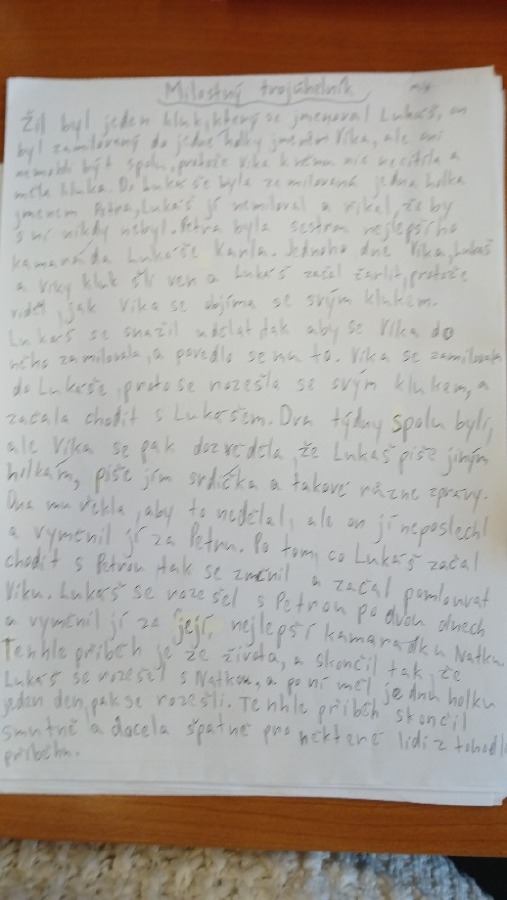 Milostný trojúhelník
Žil byl jeden kluk, který se jmenoval Lukáš, on
byl zamilovaný do jedné holky jménem Vika, ale oni
nemohli být spolu, protože Vika k němu nic necítila a
měla kluka. Do Lukáše byla zamilovaná jedna holka
jménem Petra, Lukáš jí nemiloval a říkal, že by
s ní nikdy nebyl. Petra byla sestrou nejlepšího
kamaráda Lukáše Karla. Jednoho dne Vika, Lukáš
a Viky kluk šli ven a Lukáš začal žárlit, protože
viděl, jak Vika se objímá se svým klukem.
Lukáš se snažil udělat tak aby se Vika do
něho zamilovala, a povedlo se mu to. Vika se zamilovala
do Lukáše, proto se rozešla se svým klukem, a
začala chodit s Lukášem. Dva týdny spolu byli,
ale Vika se pak dozvěděla že Lukáš píše jiným
holkám, píše jím srdíčka a takové různe zprávy.
Ona mu řekla, aby to nedělal, ale on jí neposlechl
a vyměnil jí za Petru. Po tom, co Lukáš začal
chodit s Petrou tak se změnil a začal pomlouvat
Viku. Lukáš se rozešel s Petrou po dvou dnech
a vyměnil jí za její, nejlepší kamarádku Natku.
Tenhle příběh je že života, a skončil tak, že
Lukáš se rozešel s Natkou, a po ní měl jednu holku
jeden den, pak se rozešli. Tenhle příběh skončil
smutně a docela špatně pro některé lidi z tohodle
příběhu.